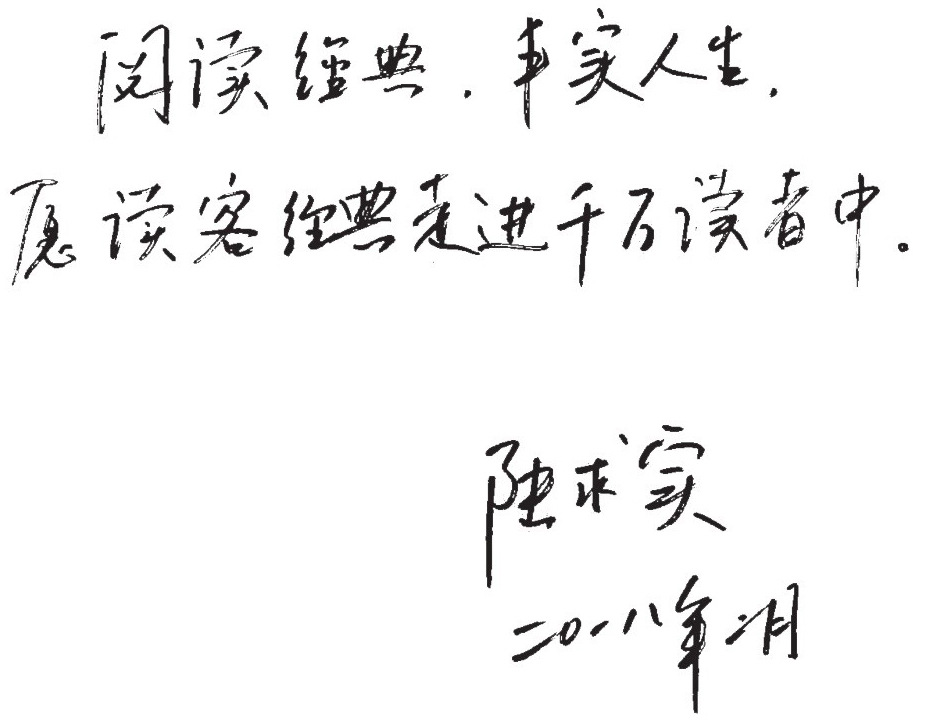 阅读經典.丰实人生.
愿读客经典走进千万读者中。
陆求实
二〇一八年二月